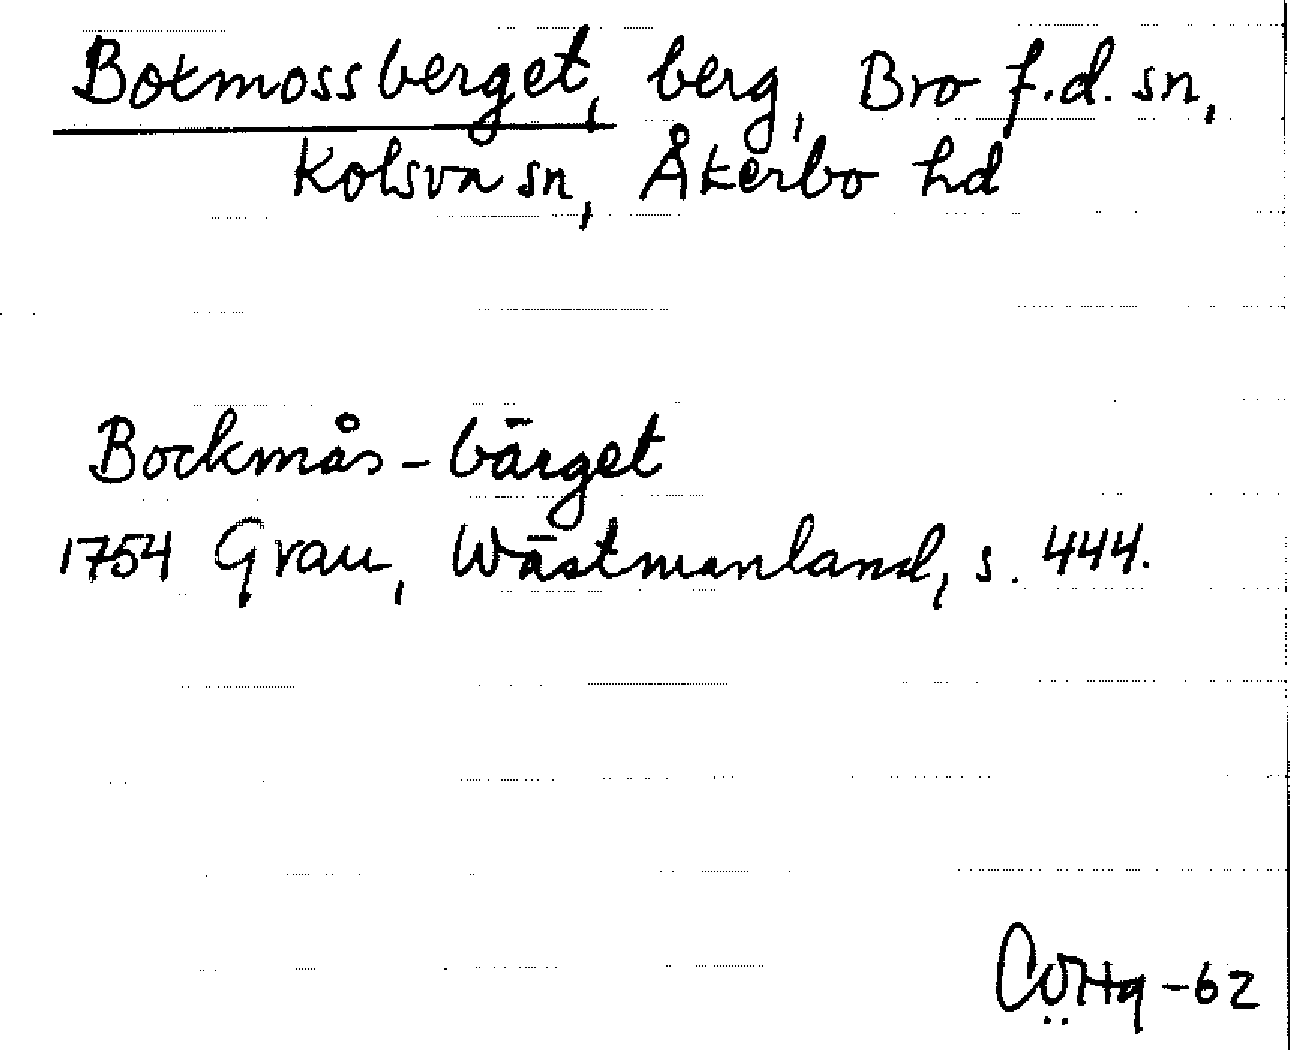 Bokmossberget, berg, Bro f.d. sn,
Kolsva sn, Åkerbo hd
Bockmås-bärget
1754 Grau, Wästmanland, s. 444.
-62